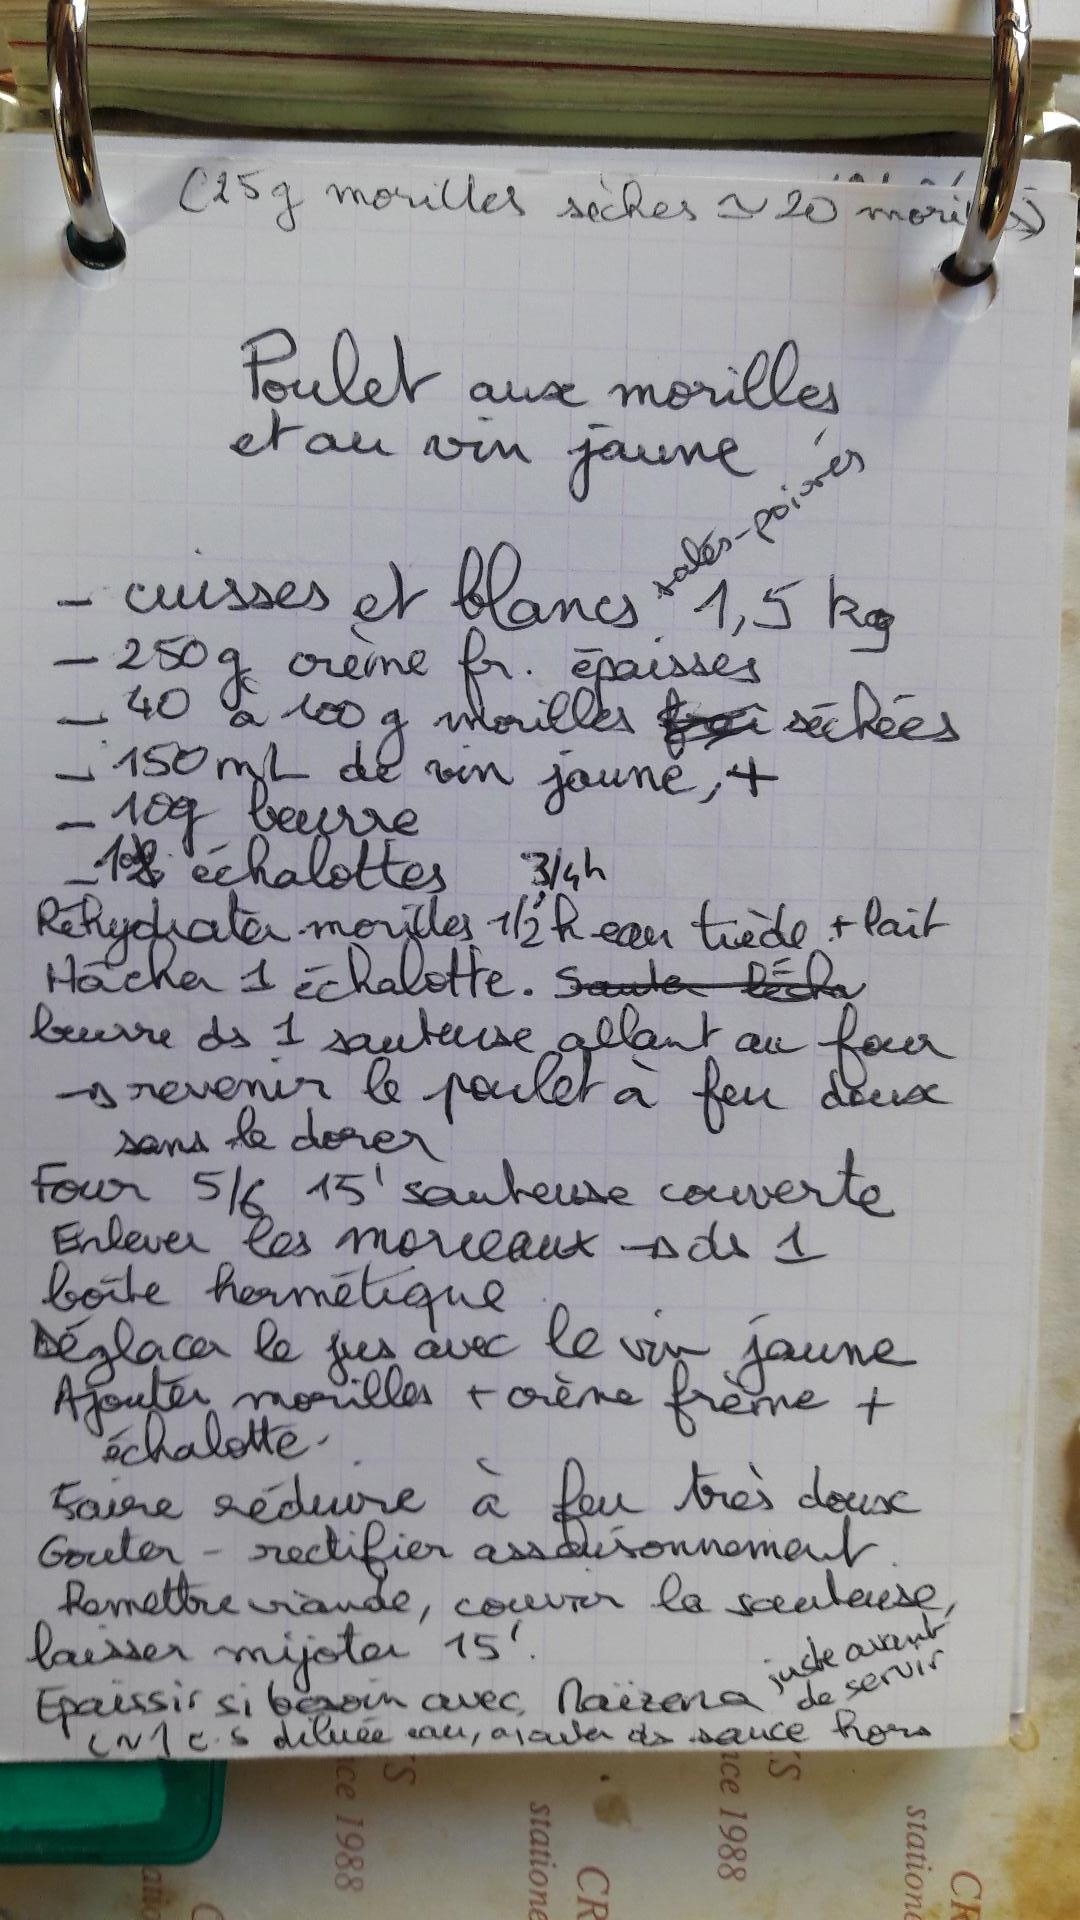 (25g morilles sèches ≃ 20 morilles)
Poulet aux morilles
et au vin jaune
salés-poivrés
- cuisses et blancs 1,5 kg
- 250g crème fr. épaisses
- 40 à 100 g morilles séchées
- 150 mL de vin jaune, +
- 10g beurre
- échalottes
3/4h
Réhydrater morilles 1/2 h eau tiède + lait
Hâcher 1 échalotte.
beurre ds 1 sauteuse allant au four
→ revenir le poulet à feu doux
sans le dorer
Four 5/6 15' sauteuse couverte
Enlever les morceaux → ds 1
boîte hermétique
Déglacer le jus avec le vin jaune
Ajouter morilles + crème frème +
échalotte.
Faire réduire à feu très doux
Gouter - rectifier assaisonnement.
Remettre viande, couvrir la sauteuse,
laisser mijoter 15'.
juste avant
de servir
Epaissir si besoin avec Maïzena
(~1 c.s diluée eau, ajouter ds sauce hors
CR
statione
nce 1988